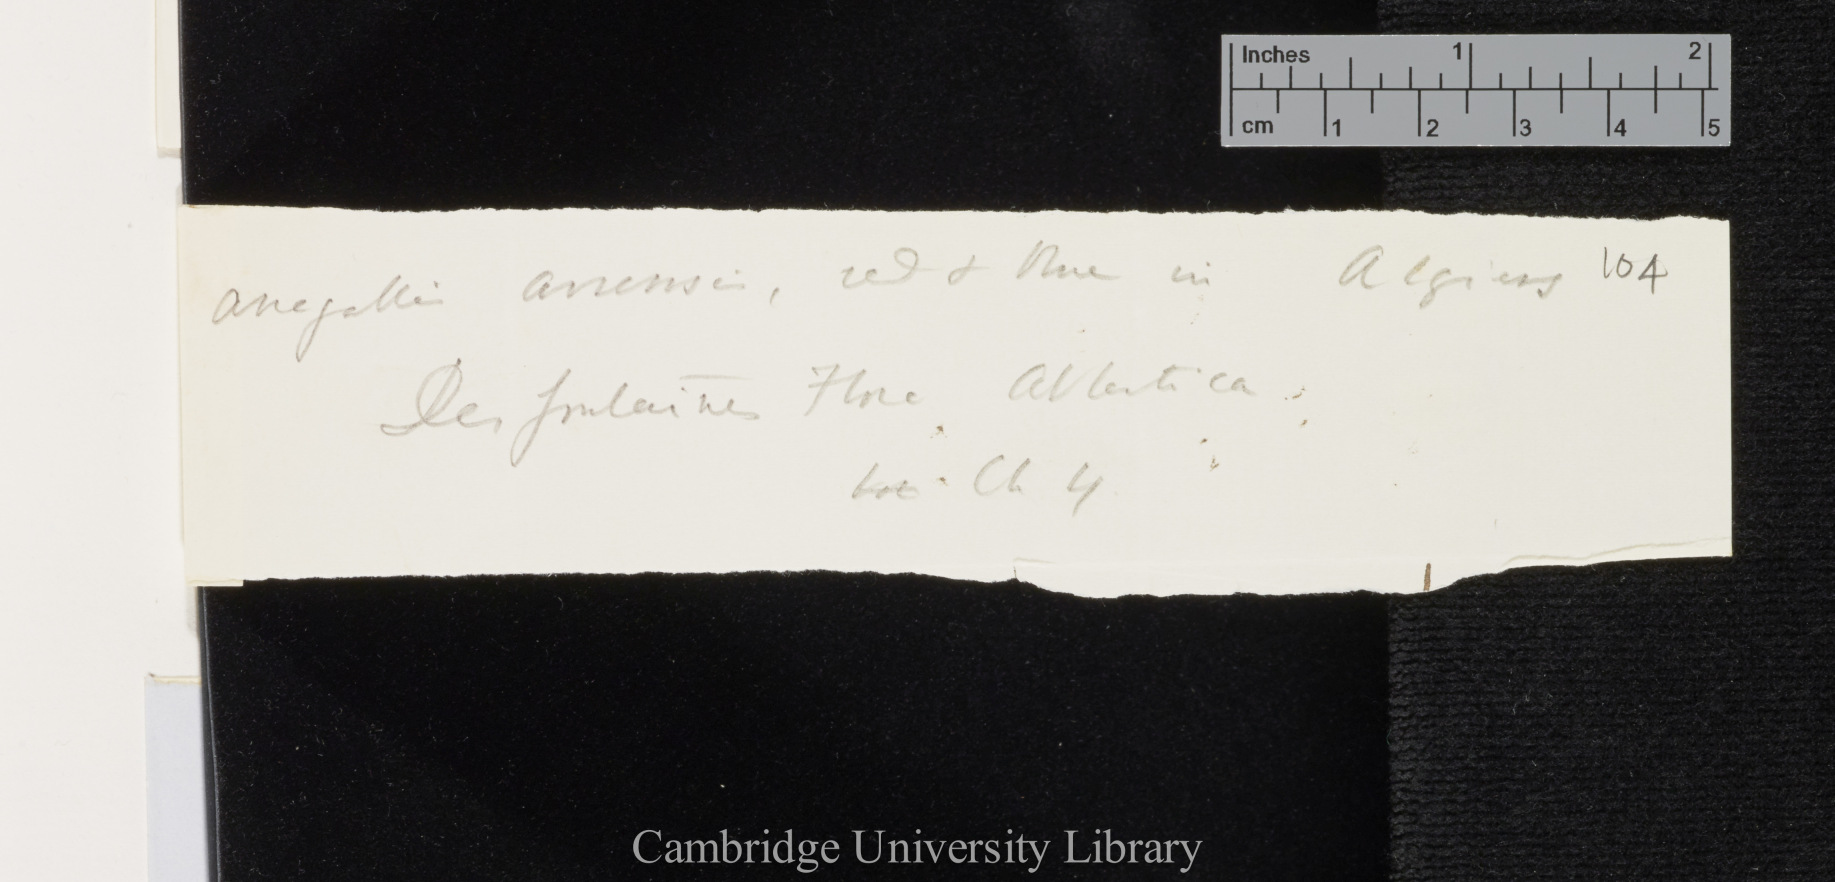 Inches 1 2
cm 1 2 3 4 5
Anagallis arvensis, red & blue in Algiers 104
Desfontaines Flora Atlantica
Ch 4
Cambridge University Library